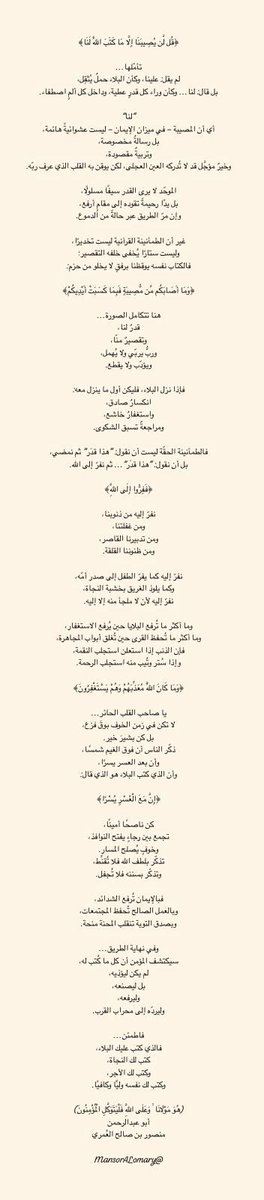 ﴿قُل لَّن يُصِيبَنَا إِلَّا مَا كَتَبَ اللَّهُ لَنَا﴾
تأمّلها...
لم يقل: علينا، وكأن البلاء حملٌ يُثقِل،
بل قال: لنا... وكأن وراء كل قدرٍ عطية، وداخل كل ألمٍ اصطفاء.
"لنا"
أي أن المصيبة – في ميزان الإيمان – ليست عشوائيةً هائمة،
بل رسالةٌ مخصوصة،
وتربيةٌ مقصودة،
وخيرٌ مؤجّل قد لا تُدركه العين العجلى، لكن يوقن به القلب الذي عرف ربّه.
الموحّد لا يرى القدر سيفًا مسلولًا،
بل يدًا رحيمةً تقوده إلى مقام أرفع،
وإن مرّ الطريق عبر حالةٍ من الدموع.
غير أن الطمأنينة القرآنية ليست تخديرًا،
وليست ستارًا يُخفى خلفه التقصير؛
فالكتاب نفسه يوقظنا برفقٍ لا يخلو من حزم:
﴿وَمَا أَصَابَكُم مِّن مُّصِيبَةٍ فَبِمَا كَسَبَتْ أَيْدِيكُمْ﴾
هنا تتكامل الصورة...
قدرٌ لنا،
وتقصيرٌ منّا،
وربٌّ يربّي ولا يُهمل،
ويؤدّب ولا يقطع.
فإذا نزل البلاء، فليكن أول ما ينزل معه:
انكسارٌ صادق،
واستغفارٌ خاشع،
ومراجعةٌ تسبق الشكوى.
فالطمأنينة الحقّة ليست أن نقول: "هذا قدَر" ثم نمضي،
بل أن نقول: "هذا قدَر"... ثم نفرّ إلى الله.
﴿فَفِرُّوا إِلَى اللَّهِ﴾
نفرّ إليه من ذنوبنا،
ومن غفلتنا،
ومن تدبيرنا القاصر،
ومن ظنوننا القلقة.
نفرّ إليه كما يفرّ الطفل إلى صدر أمّه،
وكما يلوذ الغريق بخشبة النجاة،
نفرّ إليه لأن لا ملجأ منه إلا إليه.
وما أكثر ما تُرفع البلايا حين يُرفع الاستغفار،
وما أكثر ما تُحفظ القرى حين تُغلق أبواب المجاهرة،
فإن الذنب إذا استعلن استجلب النقمة،
وإذا سُتر وتُيب منه استجلب الرحمة.
﴿وَمَا كَانَ اللَّهُ مُعَذِّبَهُمْ وَهُمْ يَسْتَغْفِرُونَ﴾
يا صاحب القلب الحائر...
لا تكن في زمن الخوف بوق فزع،
بل كن بشير خير.
ذكّر الناس أن فوق الغيم شمسًا،
وأن بعد العسر يسرًا،
وأن الذي كتب البلاء هو الذي قال:
﴿إِنَّ مَعَ الْعُسْرِ يُسْرًا﴾
كن ناصحًا أمينًا،
تجمع بين رجاءٍ يفتح النوافذ،
وخوفٍ يُصلح المسار.
تذكّر بلطف الله فلا تُقنّط،
وتذكّر بسننه فلا تُجفل.
فبالإيمان تُرفع الشدائد،
وبالعمل الصالح تُحفظ المجتمعات،
وبصدق التوبة تنقلب المحنة منحة.
وفي نهاية الطريق...
سيكتشف المؤمن أن كل ما كُتب له،
لم يكن ليؤذيه،
بل ليصنعه،
وليرفعه،
وليردّه إلى محراب القرب.
فاطمئن...
فالذي كتب عليك البلاء،
كتب لك النجاة،
وكتب لك الأجر،
وكتب لك نفسه وليًّا وكافيًا.
(هُوَ مَوْلَانَا ۚ وَعَلَى اللَّهِ فَلْيَتَوَكَّلِ الْمُؤْمِنُونَ)
أبو عبدالرحمن
منصور بن صالح العُمري
@MansorALomary